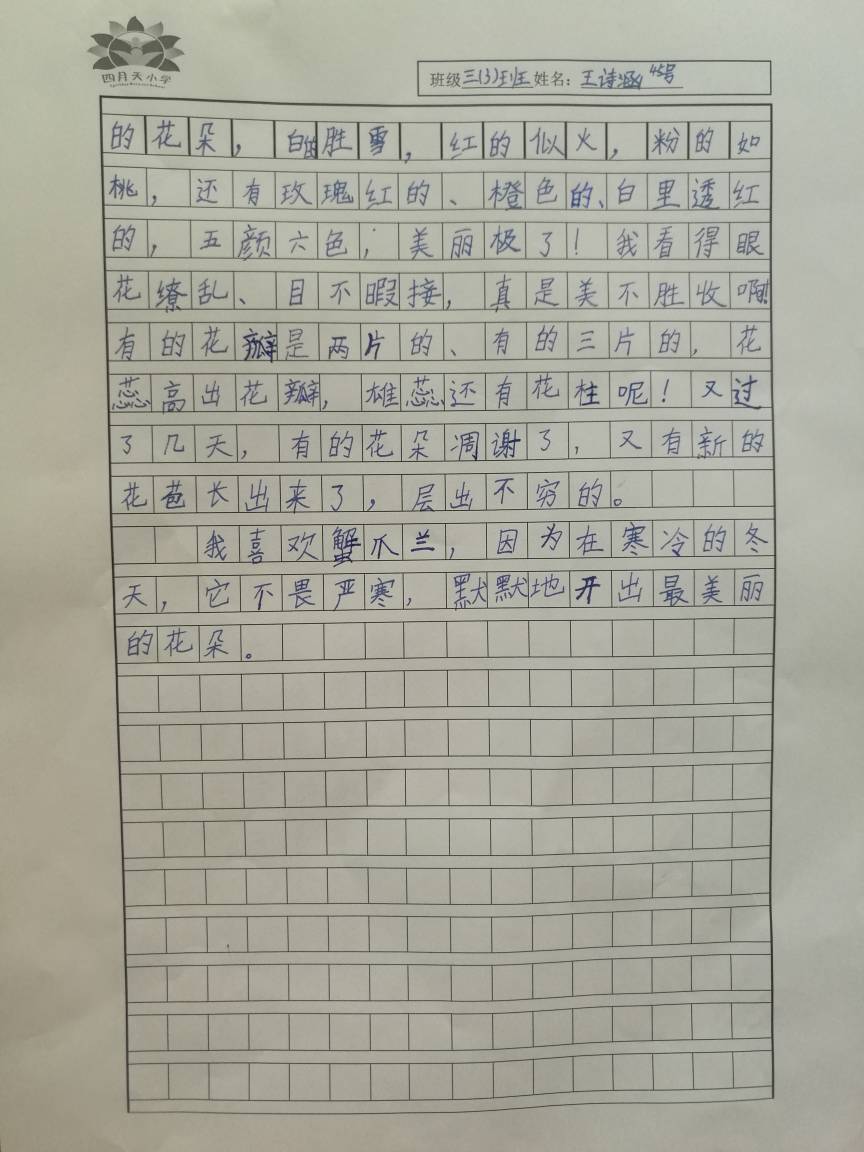 四月天小学
班级三(3)班 姓名：王诗涵 45号
的花朵，白的胜雪，红的似火，粉的如
桃，还有玫瑰红的、橙色的、白里透红
的，五颜六色，美丽极了！我看得眼
花缭乱、目不暇接，真是美不胜收啊！
有的花瓣是两片的、有的三片的，花
蕊高出花瓣，雄蕊还有花柱呢！又过
了几天，有的花朵凋谢了，又有新的
花苞长出来了，层出不穷的。
我喜欢蟹爪兰，因为在寒冷的冬
天，它不畏严寒，默默地开出最美丽
的花朵。